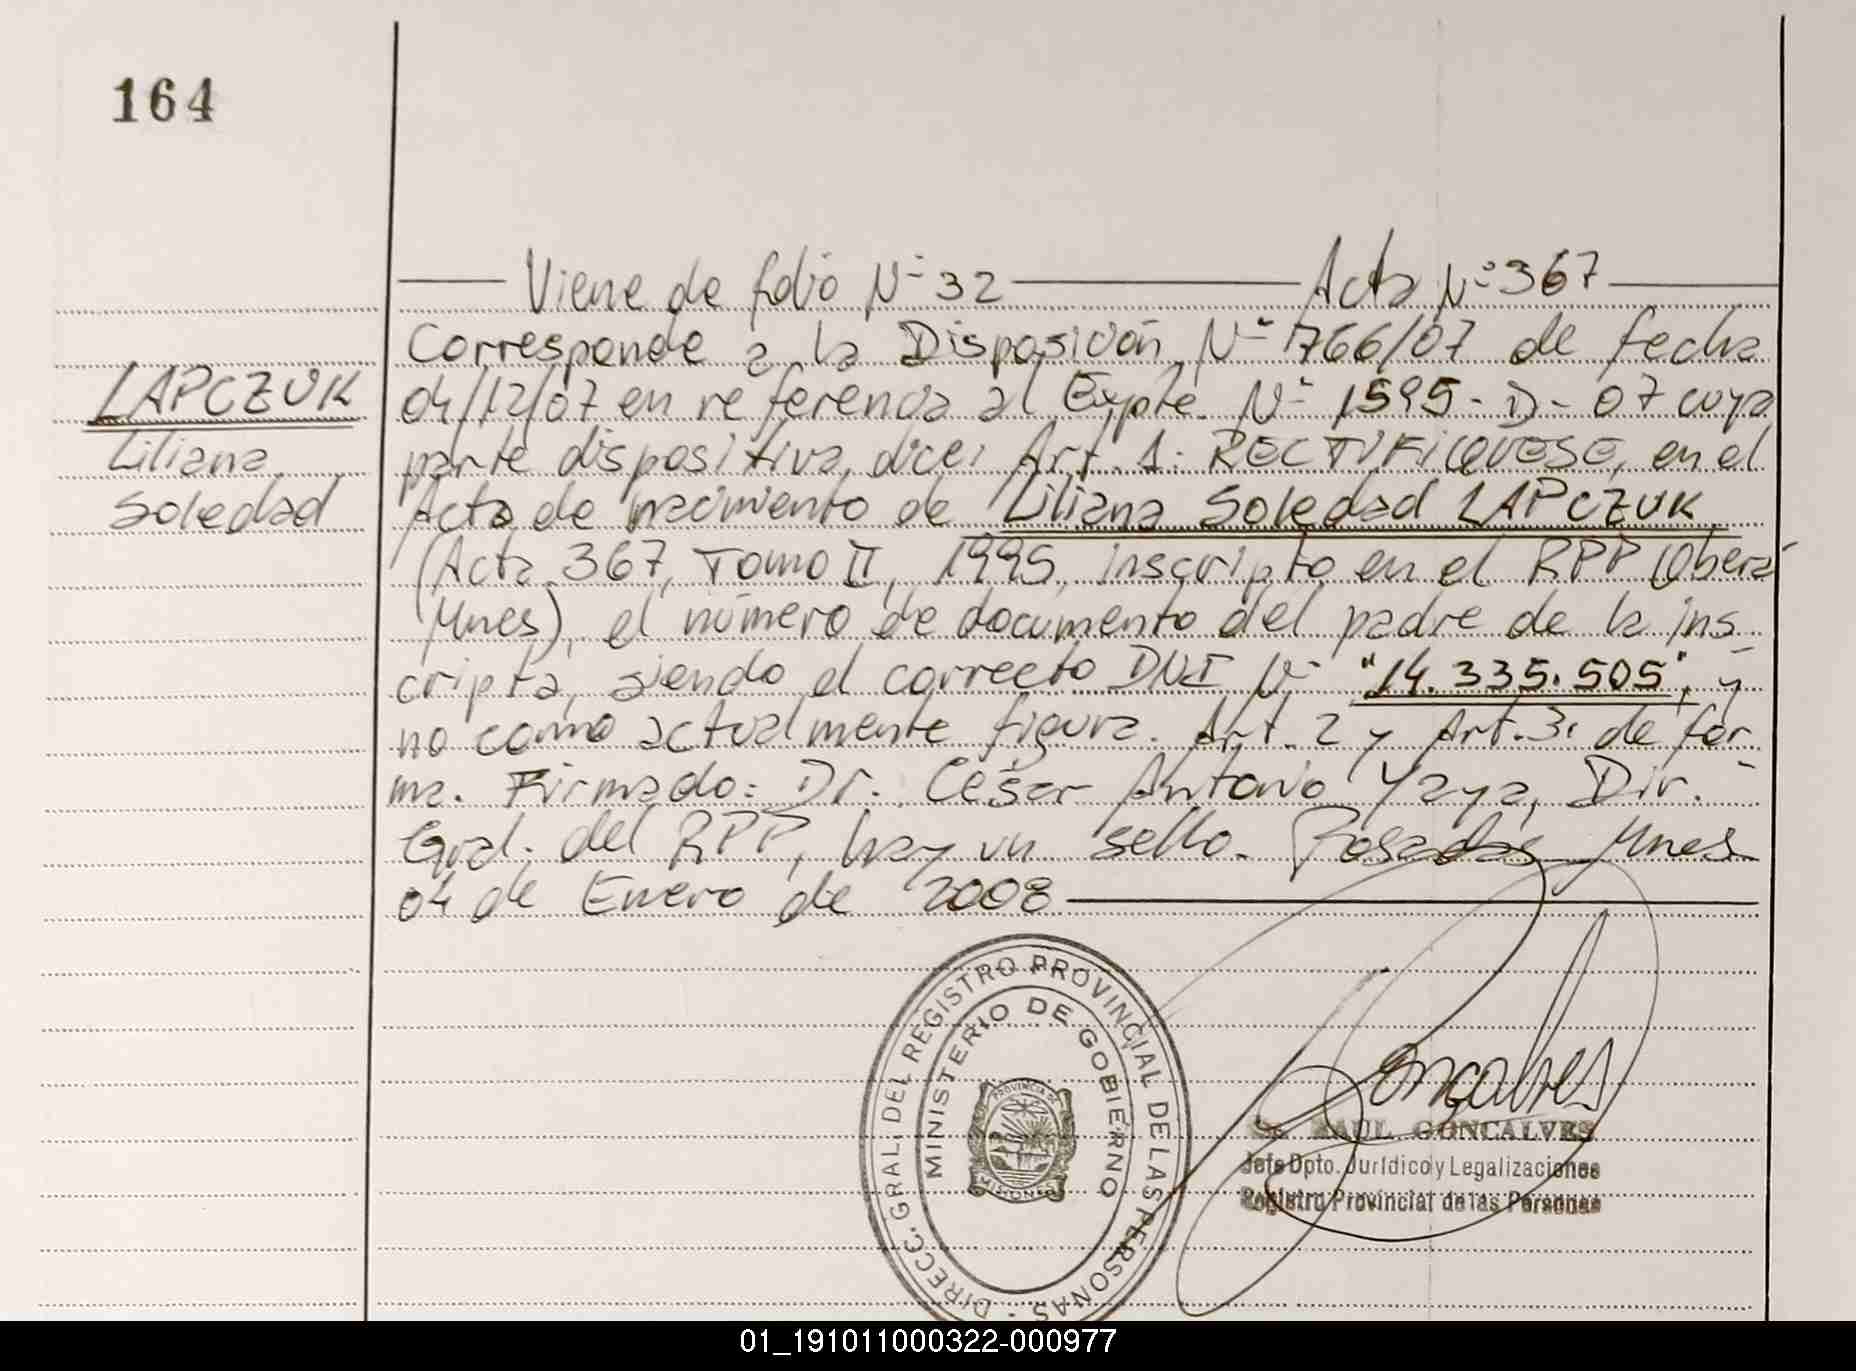 164
Viene de folio Nº 32 Acta Nº 367
Corresponde a la Disposición Nº 1766/07 de fecha
LAPCZUK
04/12/07 en referencia al Expte. Nº 1595-D-07 cuya
Liliana
parte dispositiva, dice: Art. 1: RECTIFIQUESE, en el
Soledad
Acta de nacimiento de Liliana Soledad LAPCZUK
(Acta 367, Tomo II, 1995, inscripto en el RPP (Oberá
Mnes), el número de documento del padre de la ins-
cripta, siendo el correcto DNI Nº "14.335.505", y
no como actualmente figura. Art. 2 y Art. 3: de for-
ma. Firmado: Dr. César Antonio Yaya, Dir.
Gral. del RPP, hay un sello. Posadas Mnes
04 de Enero de 2008
DIRECC. GRAL. DEL REGISTRO PROVINCIAL DE LAS PERSONAS -
MINISTERIO DE GOBIERNO
PROVINCIA DE
MISIONES
Goncalves
RAUL GONCALVES
Jefe Dpto. Jurídico y Legalizaciones
Registro Provincial de las Personas
01_191011000322-000977